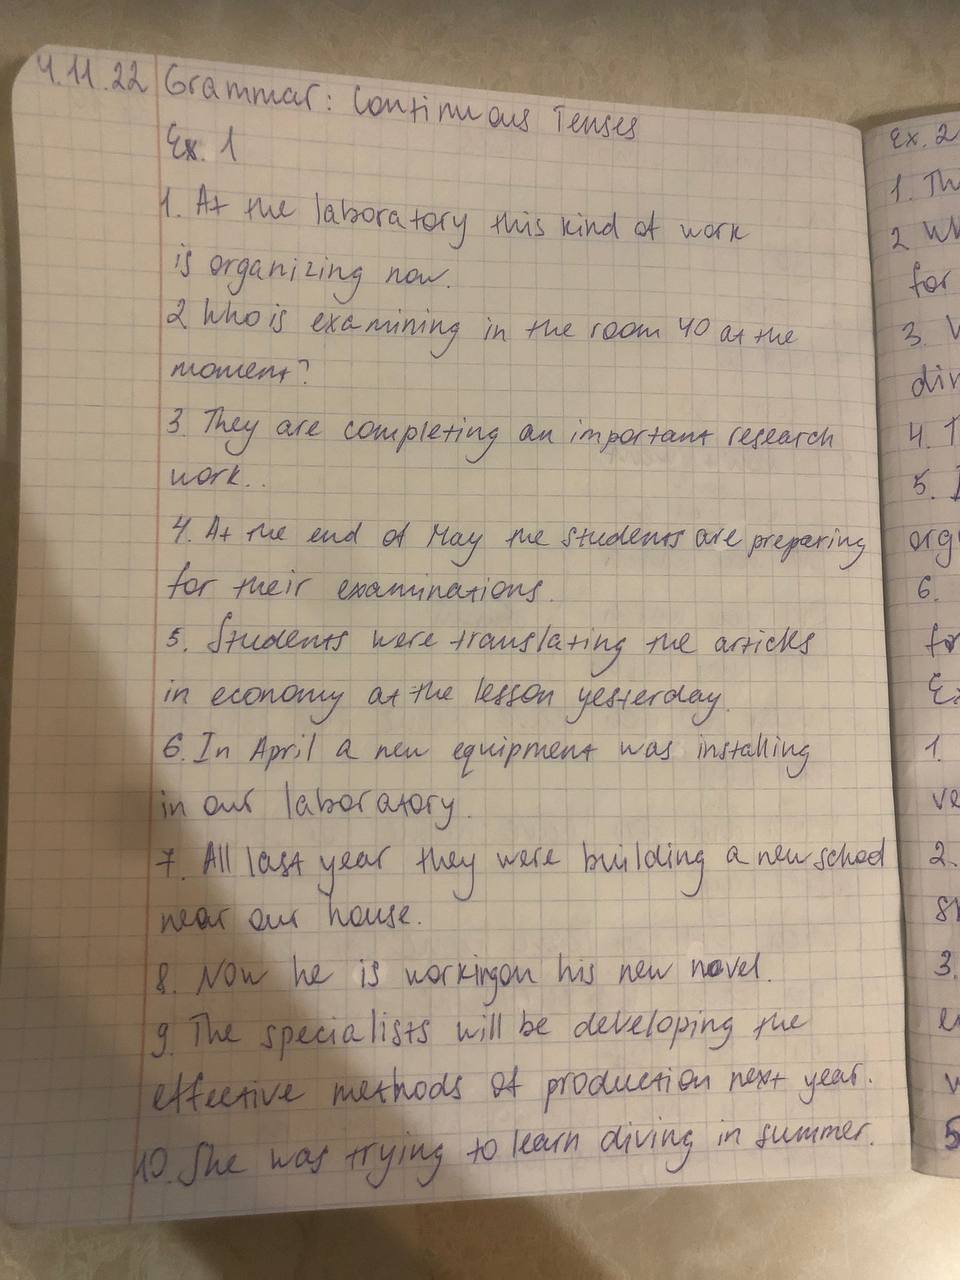 4.11.22 Grammar: Continuous Tenses
Ex. 1
1. At the laboratory this kind of work
is organizing now.
2 Who is examining in the room 40 at the
moment?
3. They are completing an important research
work..
4. At the end of May the students are preparing
for their examinations.
5. Students were translating the articles
in economy at the lesson yesterday.
6. In April a new equipment was installing
in our laboratory.
7. All last year they were building a new school
near our house.
8. Now he is working on his new novel.
9. The specialists will be developing the
effective methods of production next year.
10. She was trying to learn diving in summer.
Ex. 2
1.
2
for
3.
4.
5.
6.
1.
2.
3.
5